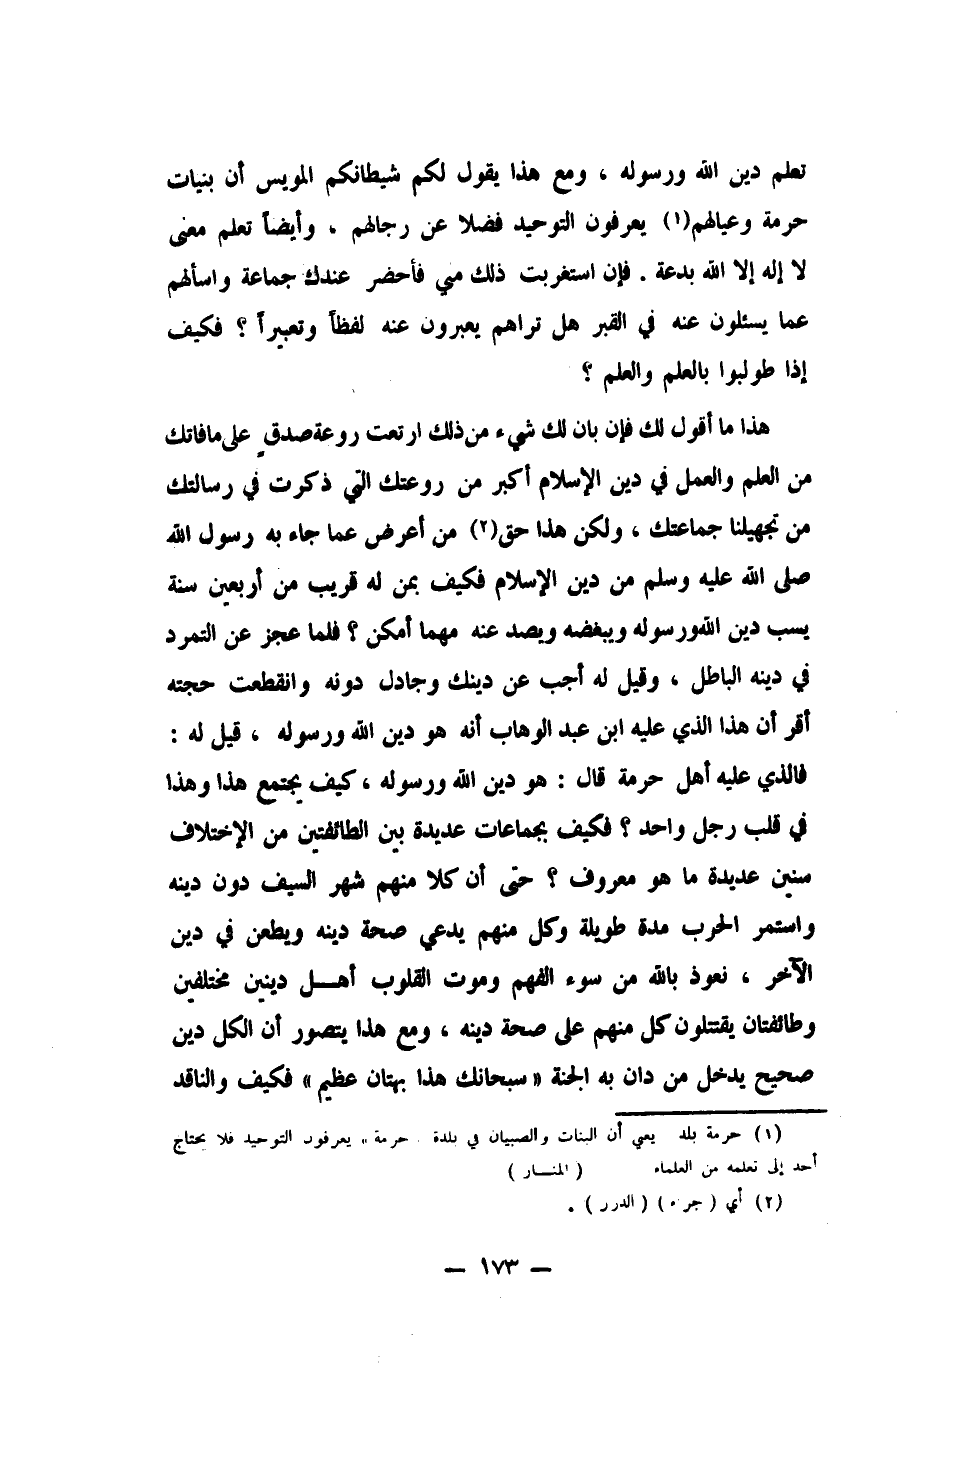 تعلم دين الله ورسوله ، ومع هذا يقول لكم شيطانكم المويس أن بنيات
حرمة وعيالهم(١) يعرفون التوحيد فضلا عن رجالهم ، وأيضاً تعلم معنى
لا إله إلا الله بدعة . فإن استغربت ذلك مني فأحضر عندك جماعة واسألهم
عما يسئلون عنه في القبر هل تراهم يعبرون عنه لفظاً وتعبيراً ؟ فكيف
إذا طولبوا بالعلم والعلم ؟
هذا ما أقول لك فإن بان لك شيء من ذلك ارتعت روعة صدقٍ على مافاتك
من العلم والعمل في دين الإسلام أكبر من روعتك التي ذكرت في رسالتك
من تجهيلنا جماعتك ، ولكن هذا حق(٢) من أعرض عما جاء به رسول الله
صلى الله عليه وسلم من دين الإسلام فكيف بمن له قريب من أربعين سنة
يسب دين الله ورسوله ويبغضه ويصد عنه مهما أمكن ؟ فلما عجز عن التمرد
في دينه الباطل ، وقيل له أجب عن دينك وجادل دونه وانقطعت حجته
أقر أن هذا الذي عليه ابن عبد الوهاب أنه هو دين الله ورسوله ، قيل له :
فالذي عليه أهل حرمة قال : هو دين الله ورسوله ، كيف يجتمع هذا وهذا
في قلب رجل واحد ؟ فكيف بجماعات عديدة بين الطائفتين من الإختلاف
سنين عديدة ما هو معروف ؟ حتى أن كلا منهم شهر السيف دون دينه
واستمر الحرب مدة طويلة وكل منهم يدعي صحة دينه ويطعن في دين
الآخر ، نعوذ بالله من سوء الفهم وموت القلوب أهــل دينين مختلفين
وطائفتان يقتتلون كل منهم على صحة دينه ، ومع هذا يتصور أن الكل دين
صحيح يدخل من دان به الجنة « سبحانك هذا بهتان عظيم » فكيف والناقد
(١) حرمة بلد يعي أن البنات والصبيان في بلدة حرمة » يعرفون التوحيد فلا يحتاج
أحد إلى تعلمه من العلماء ( المنــار )
(٢) أي ( جزء ) ( الدرر ) .
— ١٧٣ —